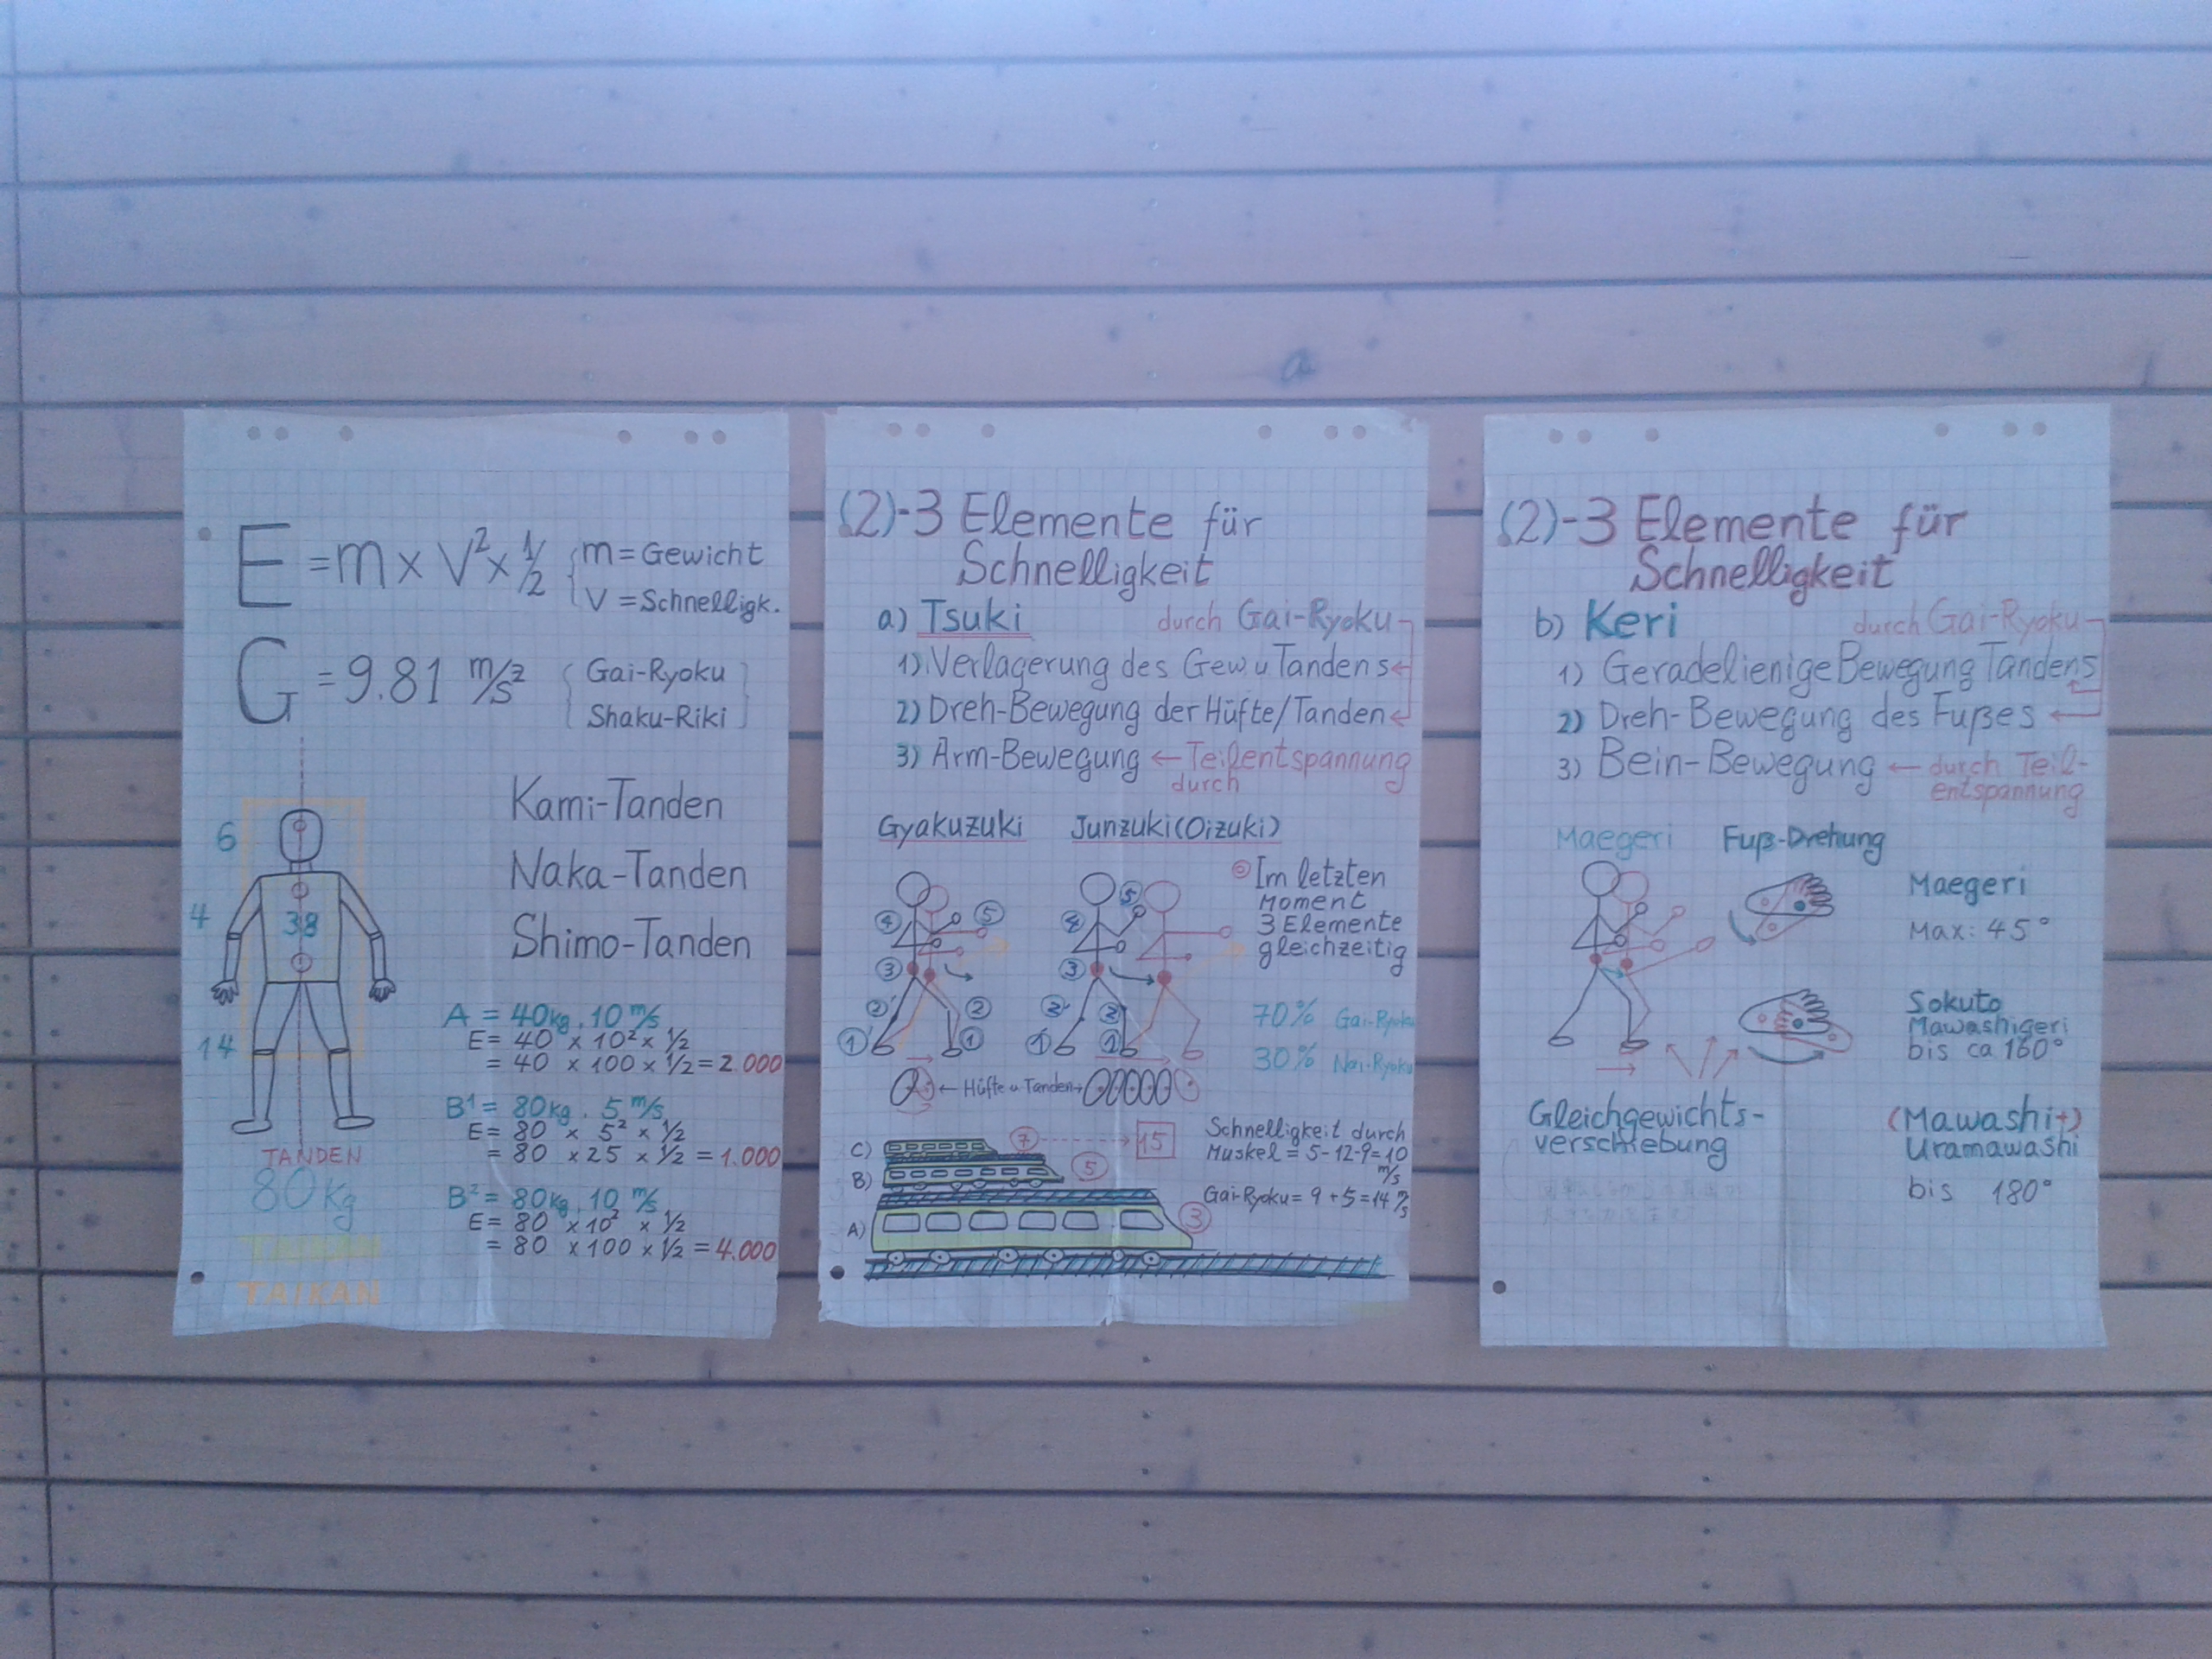 E = m x V² x 1/2
m = Gewicht
V = Schnelligk.
G = 9.81 m/s²
Gai-Ryoku
Shaku-Riki
Kami-Tanden
Naka-Tanden
Shimo-Tanden
6
4
38
14
TANDEN
80 Kg
TAIKAN
TAIKAN
A = 40kg . 10 m/s
E = 40 x 10² x 1/2
= 40 x 100 x 1/2 = 2.000
B¹ = 80kg . 5 m/s
E = 80 x 5² x 1/2
= 80 x 25 x 1/2 = 1.000
B² = 80kg . 10 m/s
E = 80 x 10² x 1/2
= 80 x 100 x 1/2 = 4.000
(2)-3 Elemente für
Schnelligkeit
a) Tsuki durch Gai-Ryoku
1) Verlagerung des Gew u Tandens
2) Dreh-Bewegung der Hüfte/Tanden
3) Arm-Bewegung ← Teilentspannung
durch
Gyakuzuki Junzuki (Oizuki)
Im letzten
Moment
3 Elemente
gleichzeitig
4 5 4 5
3 3
2' 2 2' 2
1' 1 1' 1
70% Gai-Ryoku
30% Nai-Ryoku
← Hüfte u Tanden →
C) 7 15
B) 5
A) 3
Schnelligkeit durch
Muskel = 5-12-9=10
m/s
Gai-Ryoku = 9 + 5 = 14 m/s
(2)-3 Elemente für
Schnelligkeit
b) Keri durch Gai-Ryoku
1) Geradelienige Bewegung Tandens
2) Dreh-Bewegung des Fußes
3) Bein-Bewegung ← durch Teil-
entspannung
Maegeri Fuß-Drehung
Maegeri
Max: 45°
Sokuto
Mawashigeri
bis ca 160°
Gleichgewichts-
verschiebung
(Mawashi+)
Uramawashi
bis 180°